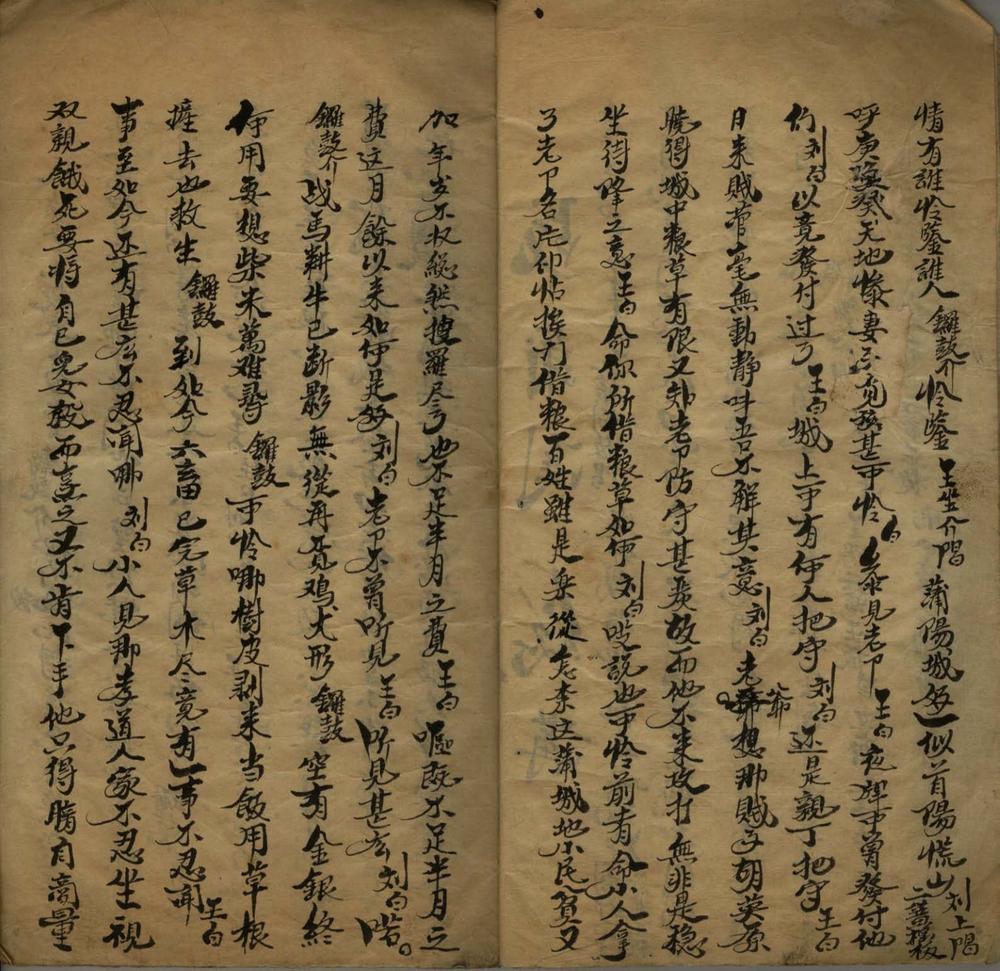 情有誰怜鉴誰人 鑼鼓介 怜鉴 王坐介唱 蒲陽城好一似首陽慌山 刘上唱 二籌板
呼庚癸天地惨妻児覓孩甚可怜 白 参見老卩 王白 夜裡可曾發付他
们 刘白 以竟發付过了 王白 城上可有何人把守 刘白 还是親丁把守 王白
日来賊营毫無動静吽吾不解其意 刘白 老爺想那賊子胡英原
曉得城中粮草有限又知老卩防守甚炭故而他不来攻打無非是稳
坐待降之意 王白 命你所借粮草如何 刘白 说也可怜前者命小人拿
了老卩名片仰帖挨门借粮百姓雖是楽從怎柰这蒲城地小民貧又
加年岁不收縱然搜羅尽了也不足半月之費 王白 嘔既不足半月之
費这月餘以来如何是好 刘白 老卩不曾听見 王白 听見甚広 刘白 喏
鑼鼓介 战馬耕牛已断影無從再覓鸡犬形 鑼鼓 空有金銀終
何用要想柴米萬难尋 鑼鼓 可怜哪樹皮剥来当飯用草根
挖去也救生 鑼鼓 到处今六畜已完草木尽竟有一事不忍聞 王白
事至如今还有甚広不忍聞哪 刘白 小人見那孝道人家不忍坐視
双親餓死要将自已児女殺而烹之又不肯下手他只得腾育商量